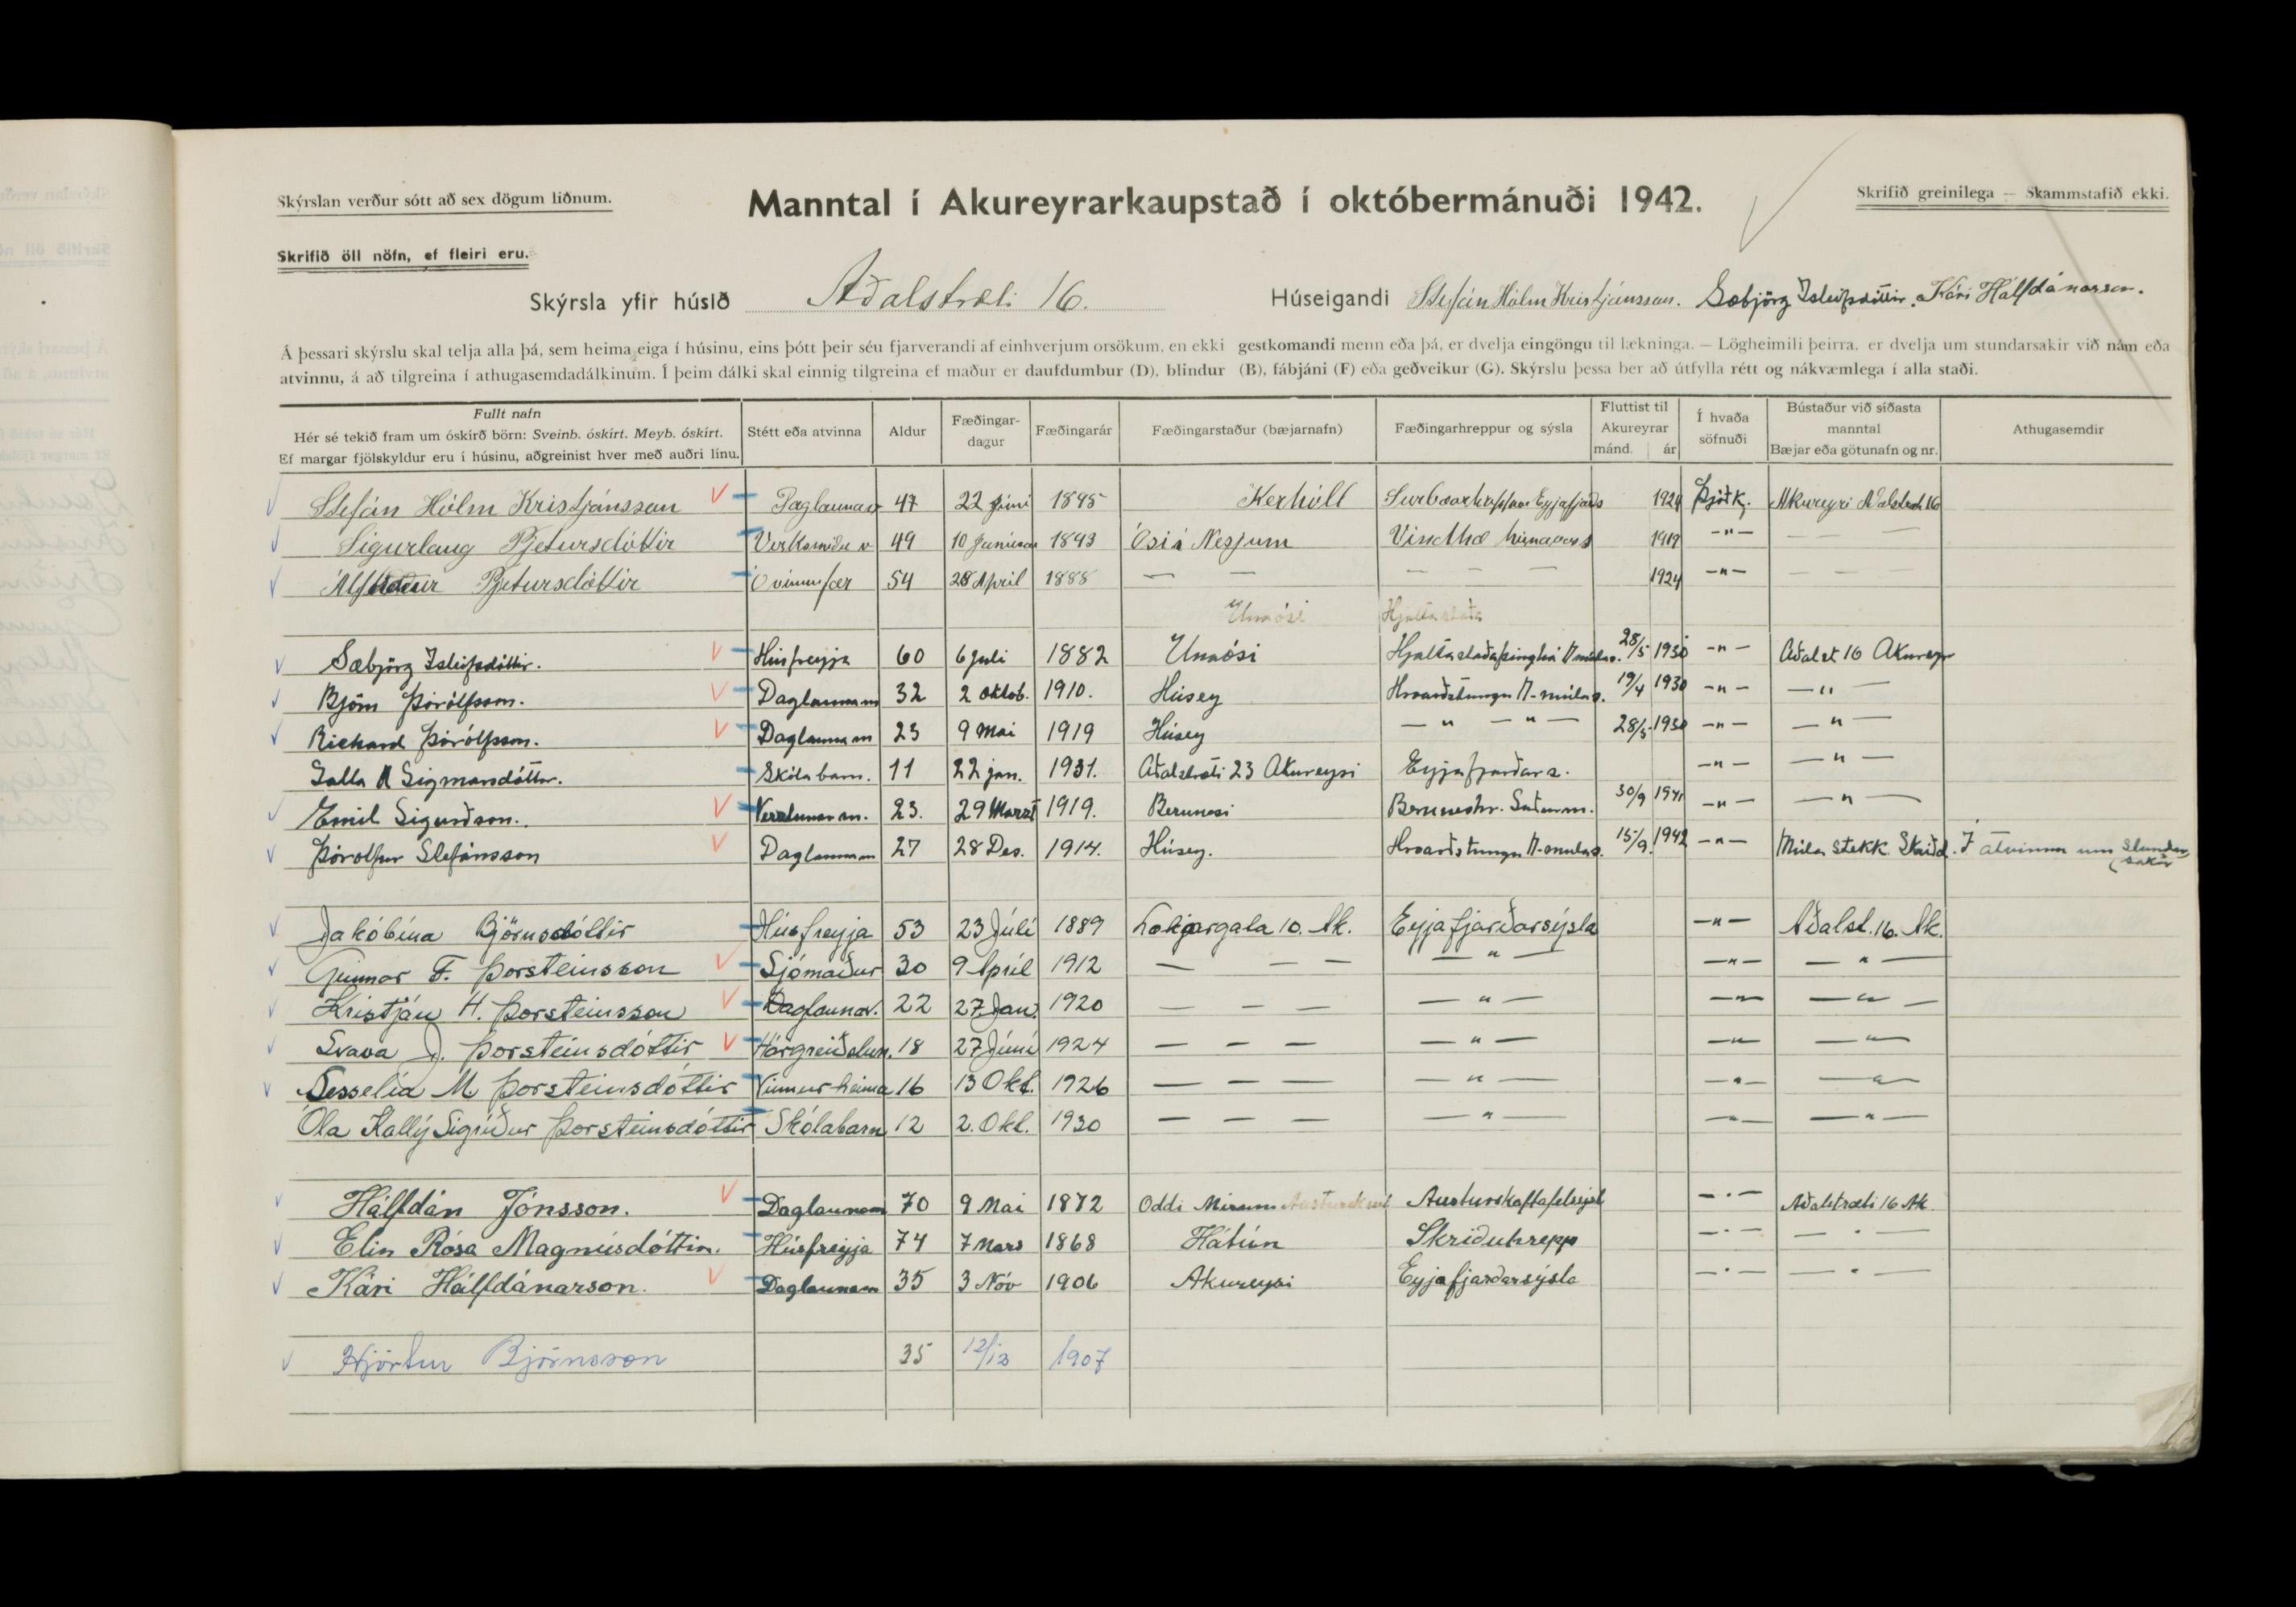 Skýrslan verður sótt að sex dögum liðnum.
Manntal í Akureyrarkaupstað í októbermánuði 1942.
Skrifið greinilega — Skammstafið ekki.
Skrifið öll nöfn, ef fleiri eru.
Skýrsla yfir húsið Aðalstræti 16. Húseigandi Stefán Hólm Kristjánsson. Sæbjörg Ísleifsdóttir. Kári Hálfdánarson.
Á þessari skýrslu skal telja alla þá, sem heima eiga í húsinu, eins þótt þeir séu fjarverandi af einhverjum orsökum, en ekki gestkomandi menn eða þá, er dvelja eingöngu til lækninga. — Lögheimili þeirra, er dvelja um stundarsakir við nám eða
atvinnu, á að tilgreina í athugasemdadálkinum. Í þeim dálki skal einnig tilgreina ef maður er daufdumbur (D), blindur (B), fábjáni (F) eða geðveikur (G). Skýrslu þessa ber að útfylla rétt og nákvæmlega í alla staði.
Fullt nafn
Hér sé tekið fram um óskírð börn: Sveinb. óskírt. Meyb. óskírt.
Ef margar fjölskyldur eru í húsinu, aðgreinist hver með auðri línu.
Stétt eða atvinna
Aldur
Fæðingar-
dagur
Fæðingarár
Fæðingarstaður (bæjarnafn)
Fæðingarhreppur og sýsla
Fluttist til
Akureyrar
mánd. ár
Í hvaða
söfnuði
Bústaður við síðasta
manntal
Bæjar eða götunafn og nr.
Athugasemdir
Stefán Hólm Kristjánsson 47 22 júní 1895 Kerhóll 1924 Þjóðk. Akureyri Aðalstræti 16
Sigurlaug Pjetursdóttir 49 10 1893 Ósi á Nesjum 1919 -"-
Pjetursdóttir Óvinnufær 54 28 Apríl 1888 — — — — — 1924 -"- — — —
Unaósi Hjaltastaða
Sæbjörg Ísleifsdóttir. Húsfreyja 60 6 júlí 1882 Unaósi Hjaltastaðaþinghá N múlas. 28/5 1930 -"- Aðalst 16 Akureyr
Björn Þórólfsson. Daglaunam 32 2 oktob. 1910. Húsey Hróarstungu N-múlas. 19/4 1930 -"- —"—
Richard Þórólfsson. Daglaunam 23 9 Mai 1919 Húsey — " — " — 28/5 1930 -"- —"—
Sigmarsdóttir. Skólabarn. 11 22 jan. 1931. Aðalstræti 23 Akureyri Eyjafjarðars. -"- —"—
Emil Sigurðson. Verslunarm. 23. 29 Marst 1919. Berunesi Beruneshr. Suðurm. 30/9 1941 -"- —"—
Þórólfur Stefánsson Daglaunam 27 28 Des. 1914. Húsey. Hróarstungu N-múlas. 15/9. 1942 -"- Múla stekk Skriðd. Í atvinnu um stundar
sakir
Jakóbína Björnsdóttir Húsfreyja 53 23 Júlí 1889 Lækjargata 10. Ak. Eyjafjarðarsýsla -"- Aðalst. 16. Ak.
Gunnar F. Þorsteinsson Sjómaður 30 9 Apríl 1912 — — — — " — -"- — " —
Kristján H. Þorsteinsson Daglaunav. 22 27 Jan. 1920 — — — — " — -"- — " —
Svava J. Þorsteinsdóttir Hárgreiðslun. 18 27 Júní 1924 — — — — " — -"- — " —
Sesselía M Þorsteinsdóttir Vinnur heima 16 13 Okt. 1926 — — — — " — -"- — " —
Óla Kallý Sigríður Þorsteinsdóttir Skólabarn 12 2. Okt. 1930 — — — — " — -"- — " —
Hálfdán Jónsson. Daglaunam 70 9 Mai 1872 Oddi Austurskaftafelsýsl -"- Aðalstræti 16 Ak.
Elin Rósa Magnúsdóttir. Húsfreyja 74 7 Mars 1868 Hátún Skriðuhrepp -"- — " —
Kári Hálfdánarson. Daglaunam 35 3 Nóv 1906 Akureyri Eyjafjarðarsýsla -"- — " —
Hjörtur Björnsson 35 12/12 1907